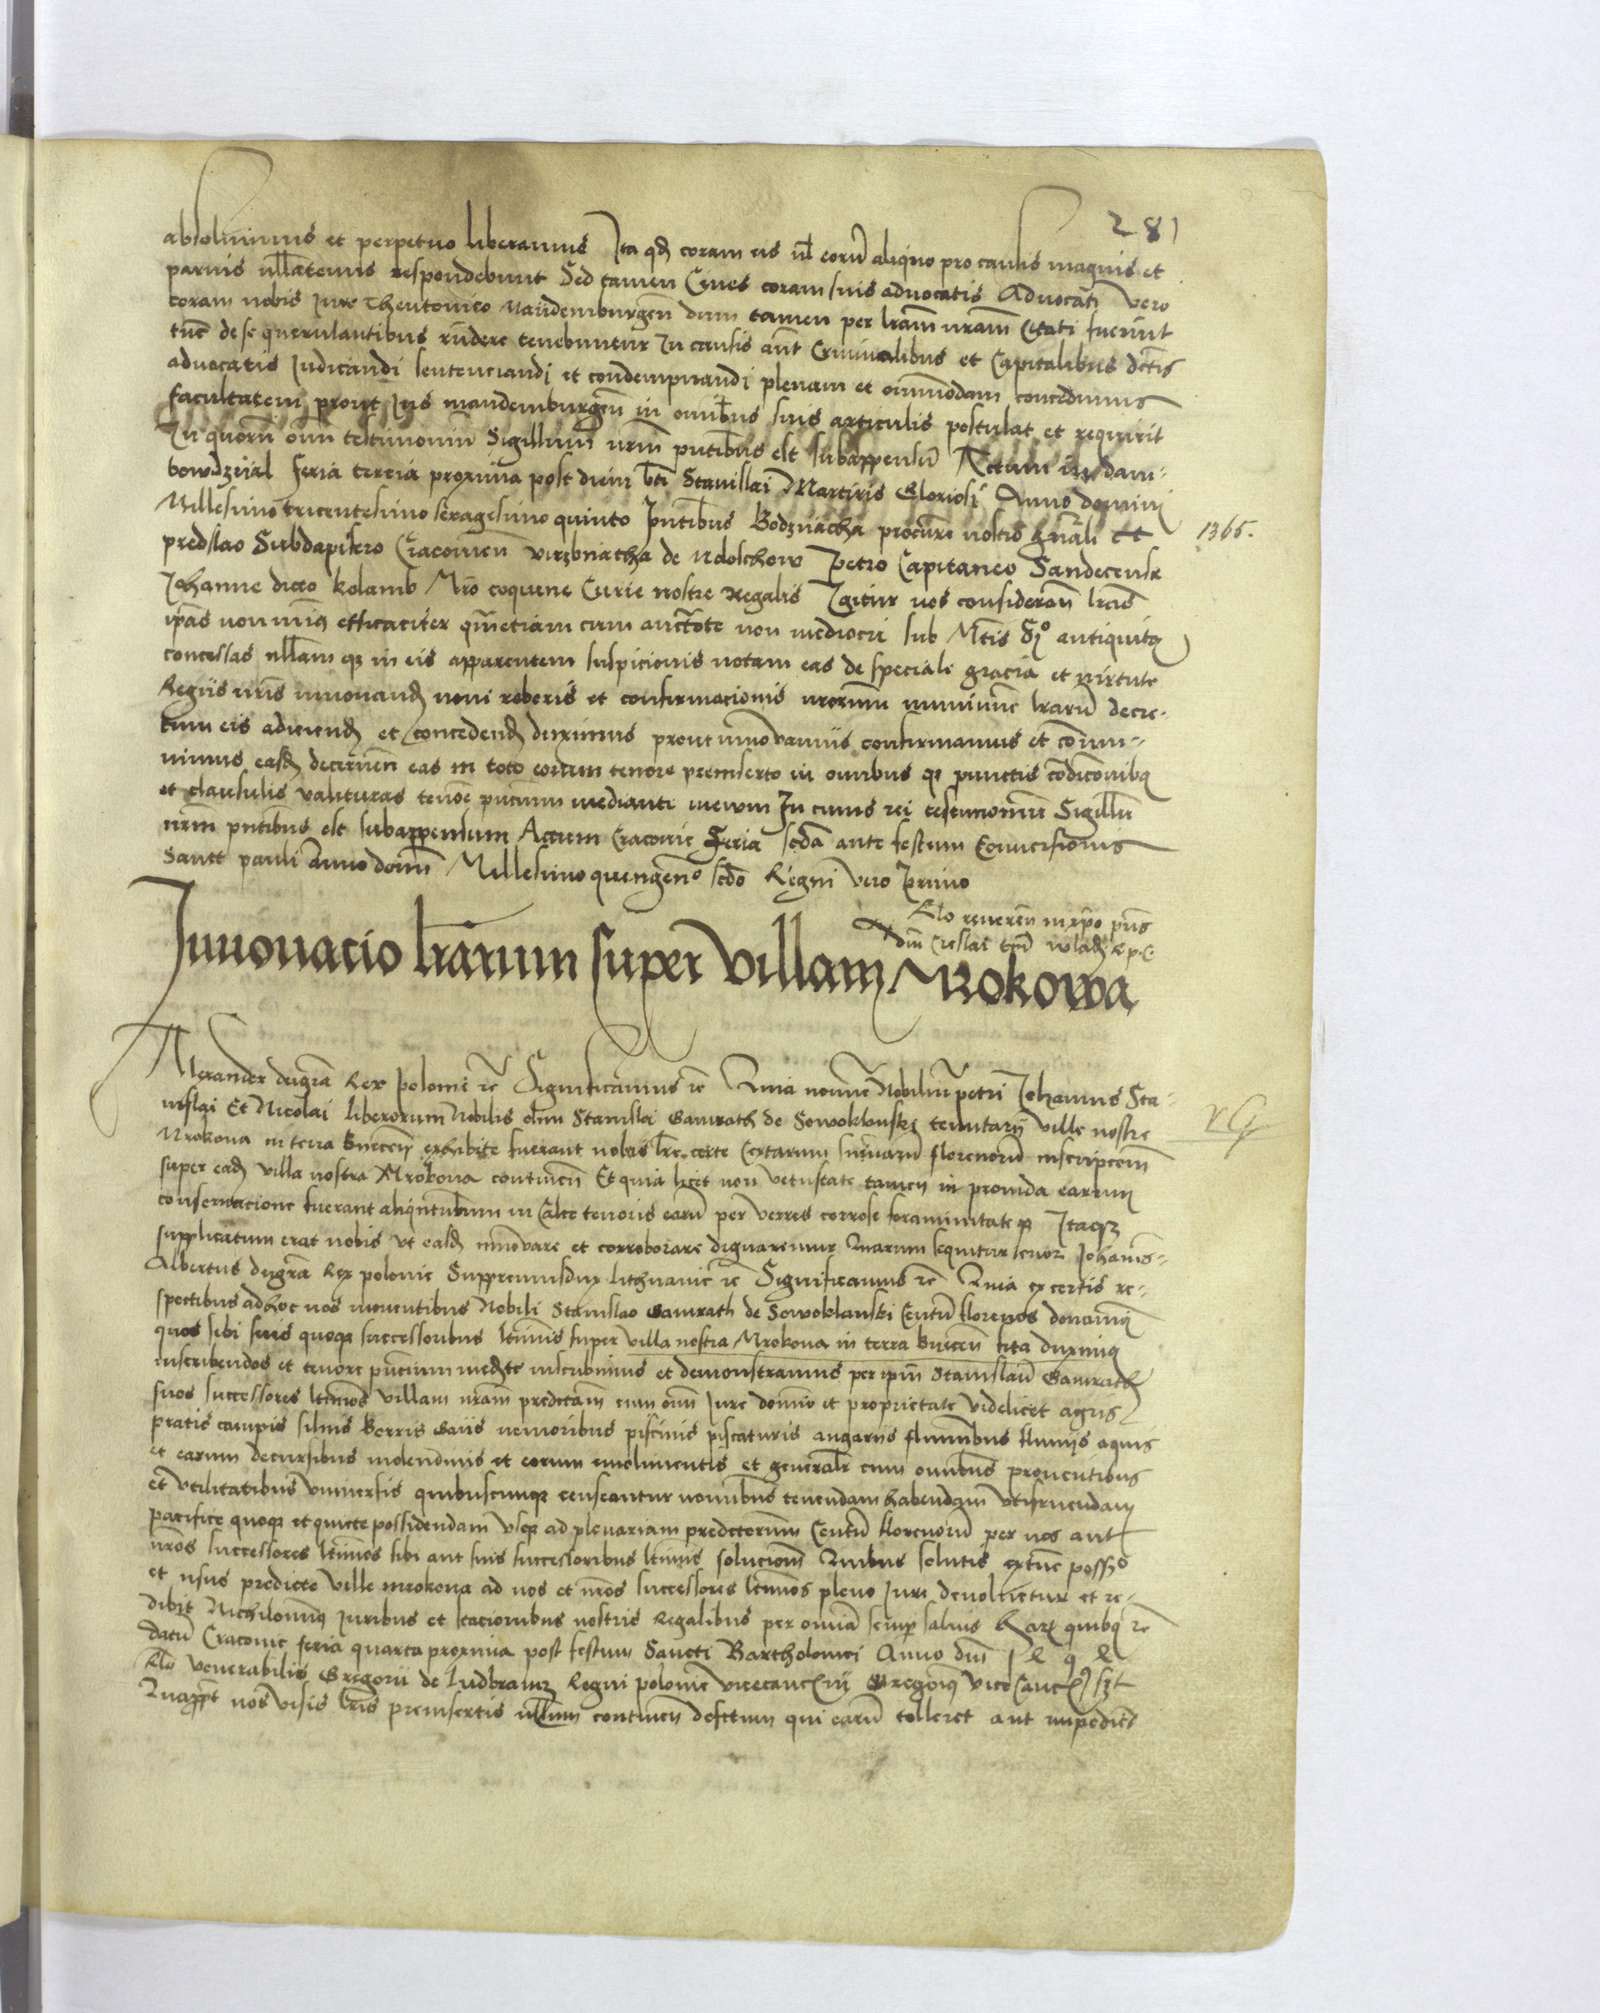 281
absolvimus et perpetuo liberamus Ita qd coram eis vl eorū aliquo pro causis magnis et
parvis nllatenus respondebunt Sed tamen Cives coram suis advocatis Advocati vero
coram nobis Jure Theutonico Maidemburgen dum tamen per lram nram Citati fuerint
tuc de se querulantibus rndere tenebuntur In causis aut Criminalibus et Capitalibus dctis
advocatis Judicandi sentenciandi et condempnandi plenam et omnimodam concedimus
facultatem prout Jus maidemburgen in omibus suis articulis postulat et requirit
In quorum oim testimonium Sigillum nrm pntibus est subappensū Actum in dam-
bowdzyal feria tercia proxima post diem bti Stanislai Martiris Gloriosi Anno domini
Millesimo tricentesimo sexagesimo quinto Pntibus Bodzatha procure nostro gnali et
1365.
predslao Subdapifero Cracovien virzbnatha de Udolchow Petro Capitaneo Sandecense
Johanne dicto kolamb Mro coquine Curie nostre Regalis Igitur nos consideran lras
ipas non minus efficaciter qm etiam cum auctote non mediocri sub Mtis Sigo antiquitus
concessas nllam qz in eis apparentem suspicionis notam eas de speciali gracia et virtute
Regiis nris innovand novi roboris et confirmacionis nrorum munimine lrarū decre-
tum eis adiciend et concedend duximus prout innovamus confirmamus et comu-
nimus easd decernen eas in toto eorum tenore preinserto in omibus qz punctis condiconibus
et clausulis valituras tenore pntium mediante mewm In cuius rei testimonium Sigillū
nrm pntibus est subappensum Actum Cracovie Feria scda ante festum Conversionis
Sancti pauli Anno domi Millesimo quingeno scdo Regni vero Primo
Rlo reveren in xpo pris
dni Creslai epi wlad R p C
Innovacio lrarum super Villam Mrokowa
Alexander dei gra Rex polonie rc Significamus rc Quia nomine Nobiliū petri Johannis Sta-
nislai Et Nicolai liberorum Nobilis olim Stanislai Gamrath de Sowoklanski tenutarii ville nostre
Mrokova in terra biecen exhibite fuerant nobis lre certe certarum summarū florenorū inscripconem
super ead villa nostra Mrokova continen Et quia licet non vetustate tamen in provida earum
conservacione fuerant aliquntulum in Calce tenoris earū per verres corrose foraminitate qz Itaqz
supplicatum erat nobis ut easd innovare et corroborare dignaremur Quarum sequitur tenor Johannes
Albertus dei gra Rex polonie Suppremus dux lithuanie rc Significamus rc Quia ex certis re-
spectibus ad hoc nos moventibus Nobili Stanislao Gamrath de Sowoklanski Centū florenos donavimus
quos sibi suis quoqz successoribus ltimis super villa nostra Mrokova in terra biecen sita duximus
inscribendos et tenore pntium medte inscribimus et demonstramus per ipm Stanislaū Gamrath
suos successores ltimos villam nram predictam cum omi Jure dominio et proprietate videlicet agris
pratis campis silvis borris Gaiis nemoribus piscinis piscaturis angariis fluminibus fluviis aquis
et earum decursibus molendinis et eorum emolimentis et generalr cum omibus proventibus
et utilitatibus universis quibuscunqz censeantur nominibus tenendam habendam utifruendam
pacifice quoqz et quiete possidendam usqz ad plenariam predictorum Centū florenorū per nos aut
nros successores ltimos sibi aut suis successoribus ltimis solucionem Quibus solutis extunc posso
et usus predicte ville mrokova ad nos et nros successores ltimos pleno Jure devolvetur et re-
dibit Nichilominus Juribus et stacionibus nostris Regalibus per omnia semp salvis harz quibus rc
Datū Cracovie feria quarta proxima post festum Sancti Bartholomei Anno dni
Rlo venerabilis Gregorii de ludbrancz Regni polonie vicecancelrii Gregorius vicecancelrs sst
Quapropt nos visis lris preinsertis nllum continen defectum qui earū tolleret aut impediet